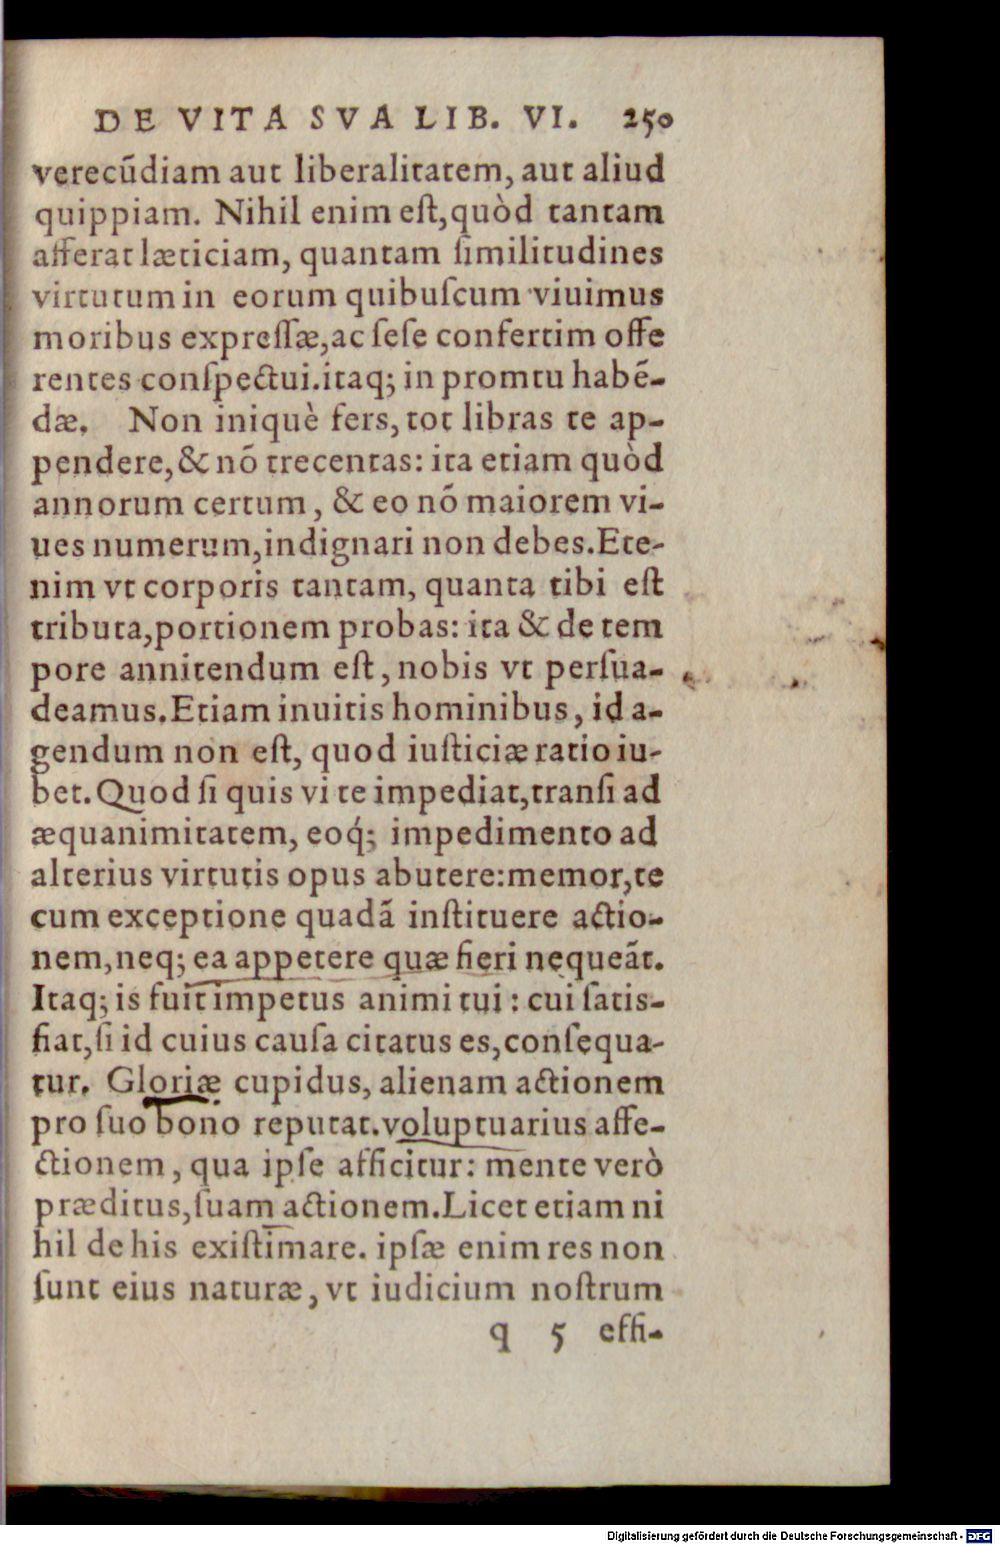 DE VITA SVA LIB. VI. 250
verecũdiam aut liberalitatem, aut aliud
quippiam. Nihil enim eſt, quòd tantam
afferat læticiam, quantam ſimilitudines
virtutum in eorum quibuſcum viuimus
moribus expreſſæ, ac ſeſe confertim offe
rentes conſpectui. itaq; in promtu habẽ-
dæ. Non iniquè fers, tot libras te ap-
pendere, & nõ trecentas: ita etiam quòd
annorum certum, & eo nõ maiorem vi-
ues numerum, indignari non debes. Ete-
nim vt corporis tantam, quanta tibi eſt
tributa, portionem probas: ita & de tem
pore annitendum eſt, nobis vt perſua-
deamus. Etiam inuitis hominibus, id a-
gendum non eſt, quod iuſticiæ ratio iu-
bet. Quod ſi quis vi te impediat, tranſi ad
æquanimitatem, eoq́; impedimento ad
alterius virtutis opus abutere: memor, te
cum exceptione quadã inſtituere actio-
nem, neq; ea appetere quæ fieri nequeãt.
Itaq; is fuit impetus animi tui: cui ſatis-
fiat, ſi id cuius cauſa citatus es, conſequa-
tur. Gloriæ cupidus, alienam actionem
pro ſuo bono reputat. voluptuarius affe-
ctionem, qua ipſe afficitur: mente verò
præditus, ſuam actionem. Licet etiam ni
hil de his exiſtimare. ipſæ enim res non
ſunt eius naturæ, vt iudicium noſtrum
q 5 effi-
Digitalisierung gefördert durch die Deutsche Forschungsgemeinschaft - DFG